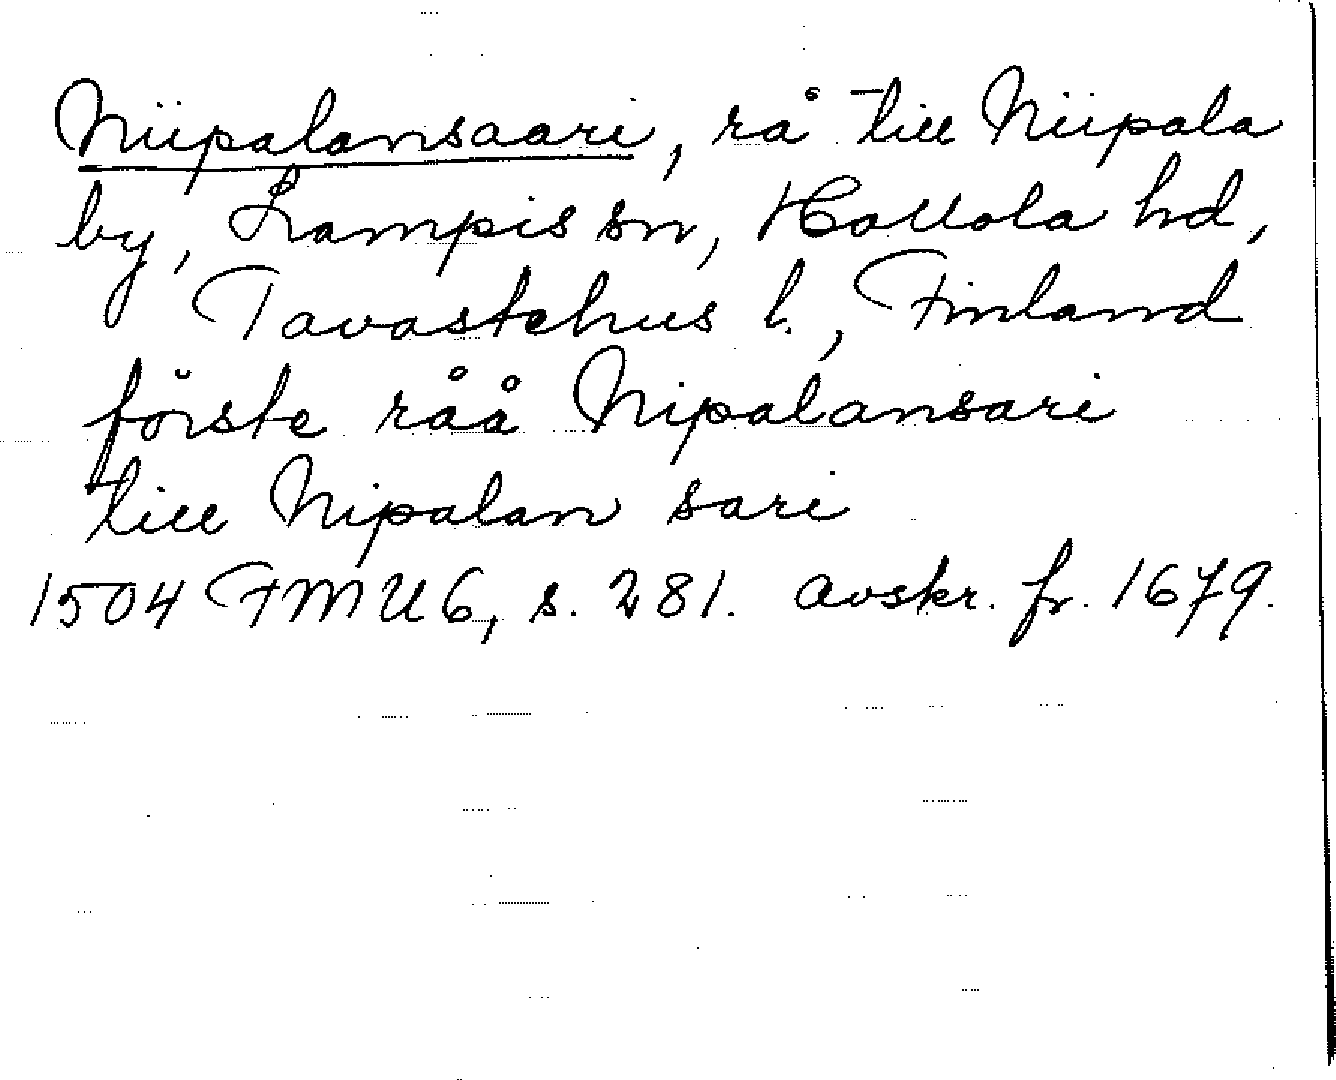 Niipalansaari, rå till Niipala
by, Lampis sn, Hollola hd,
Tavastehus l., Finland
förste råå Nipalansari
till Nipalan sari
1504 FMU 6, s. 281. avskr. fr. 1679.